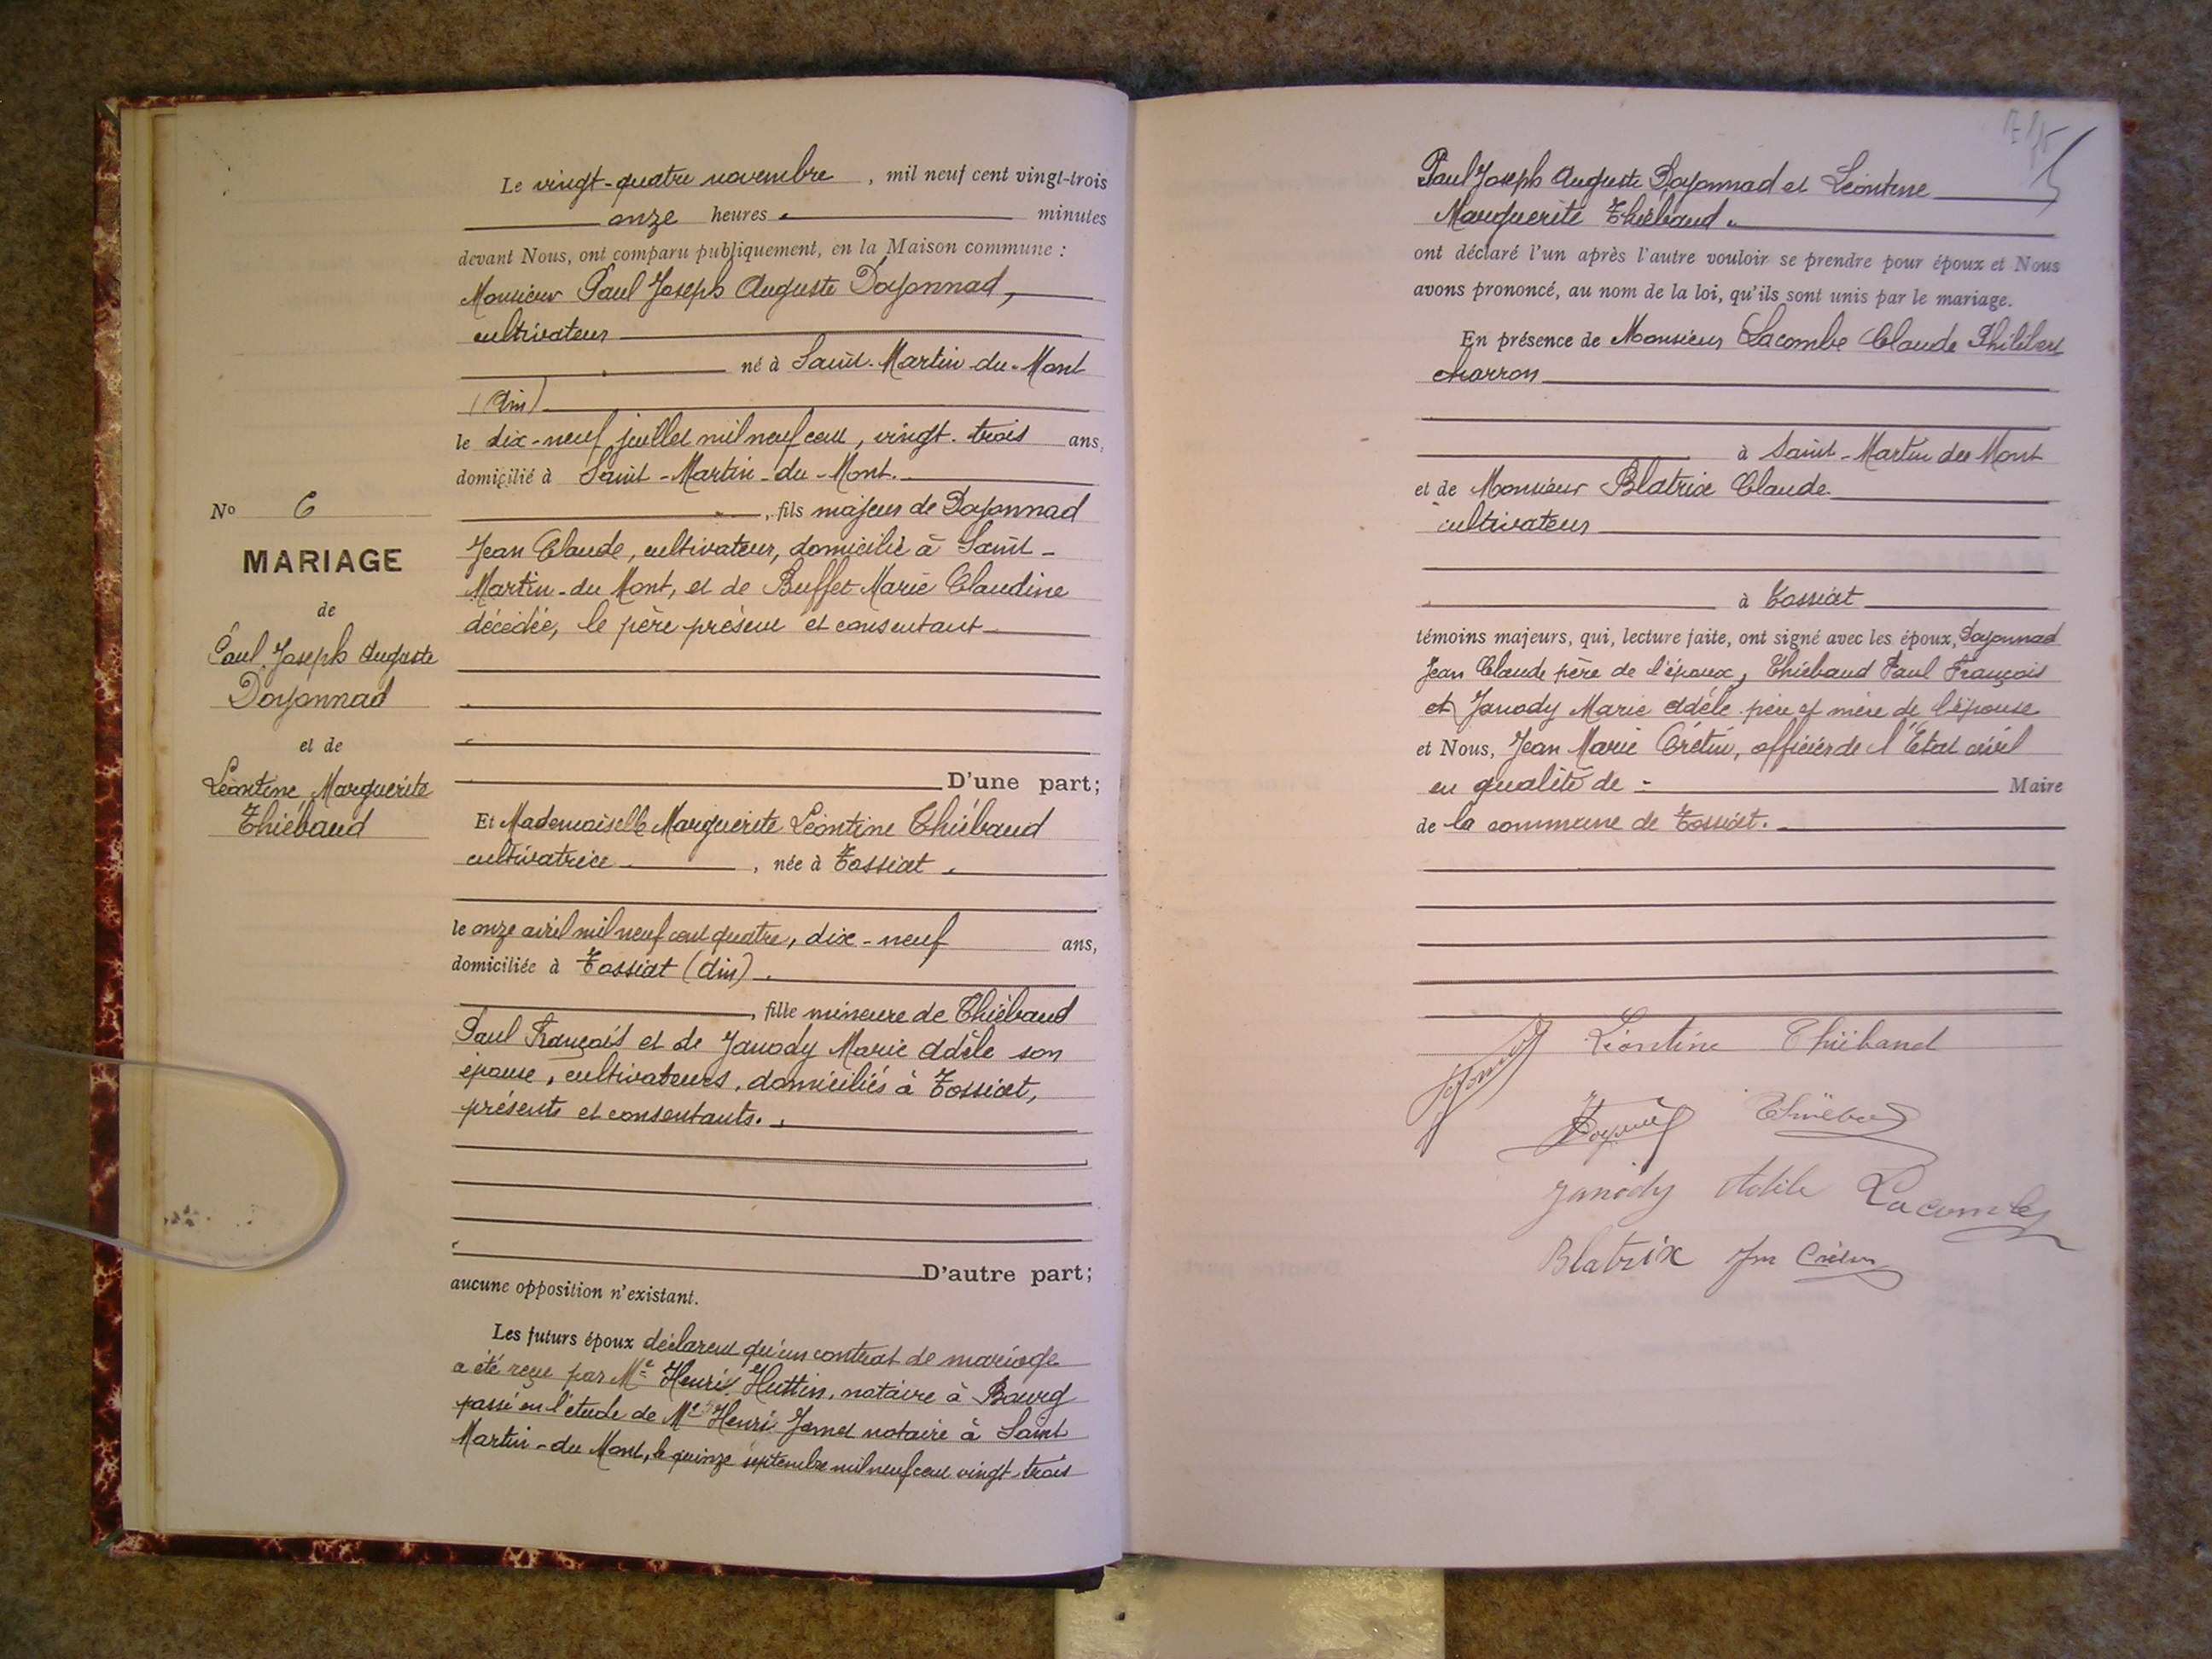 Le vingt-quatre novembre, mil neuf cent vingt-trois
onze heures minutes
devant Nous, ont comparu publiquement, en la Maison commune :
Monsieur Paul Joseph Auguste Doyonnad,
cultivateur
né à Saint-Martin-du-Mont
(Ain)
le dix-neuf juillet mil neuf cent, vingt-trois ans,
domicilié à Saint-Martin-du-Mont.
, fils majeur de Doyonnad
Jean Claude, cultivateur, domicilié à Saint-
Martin-du Mont, et de Buffet Marie Claudine
décédée, le père présent et consentant
D'une part;
Et Mademoiselle Marguerite Léontine Thiébaud
cultivatrice, née à Tossiat
le onze avril mil neuf cent quatre, dix-neuf ans,
domiciliée à Tossiat (Ain).
, fille mineure de Thiébaud
Paul François et de Janody Marie Adèle son
épouse, cultivateurs, domiciliés à Tossiat,
présents et consentants.
D'autre part;
aucune opposition n'existant.
Les futurs époux déclarent qu'un contrat de mariage
a été reçu par Me Henri Huttin, notaire à Bourg
passé en l'étude de Me Henri notaire à Saint
Martin-du Mont, le quinze septembre mil neuf cent vingt-trois
No 6
MARIAGE
de
Paul Joseph Auguste
Doyonnad
et de
Léontine Marguerite
Thiébaud
Paul Joseph Auguste Doyonnad et Léontine
Marguerite Thiébaud.
ont déclaré l'un après l'autre vouloir se prendre pour époux et Nous
avons prononcé, au nom de la loi, qu'ils sont unis par le mariage.
En présence de Monsieur Lacombe Claude Philibert
charron
à Saint-Martin du Mont
et de Monsieur Blatrix Claude
cultivateur
à Tossiat
témoins majeurs, qui, lecture faite, ont signé avec les époux, Doyonnad
Jean Claude père de l'époux, Thiébaud Paul François
et Janody Marie Adèle père et mère de l'épouse
et Nous, Jean Marie Crétin, officier de l'État civil
en qualité de Maire
de la commune de Tossiat.
Léontine Thiébaud
Thiébaud
Janody Adèle Lacombe
Blatrix Jm Crétin